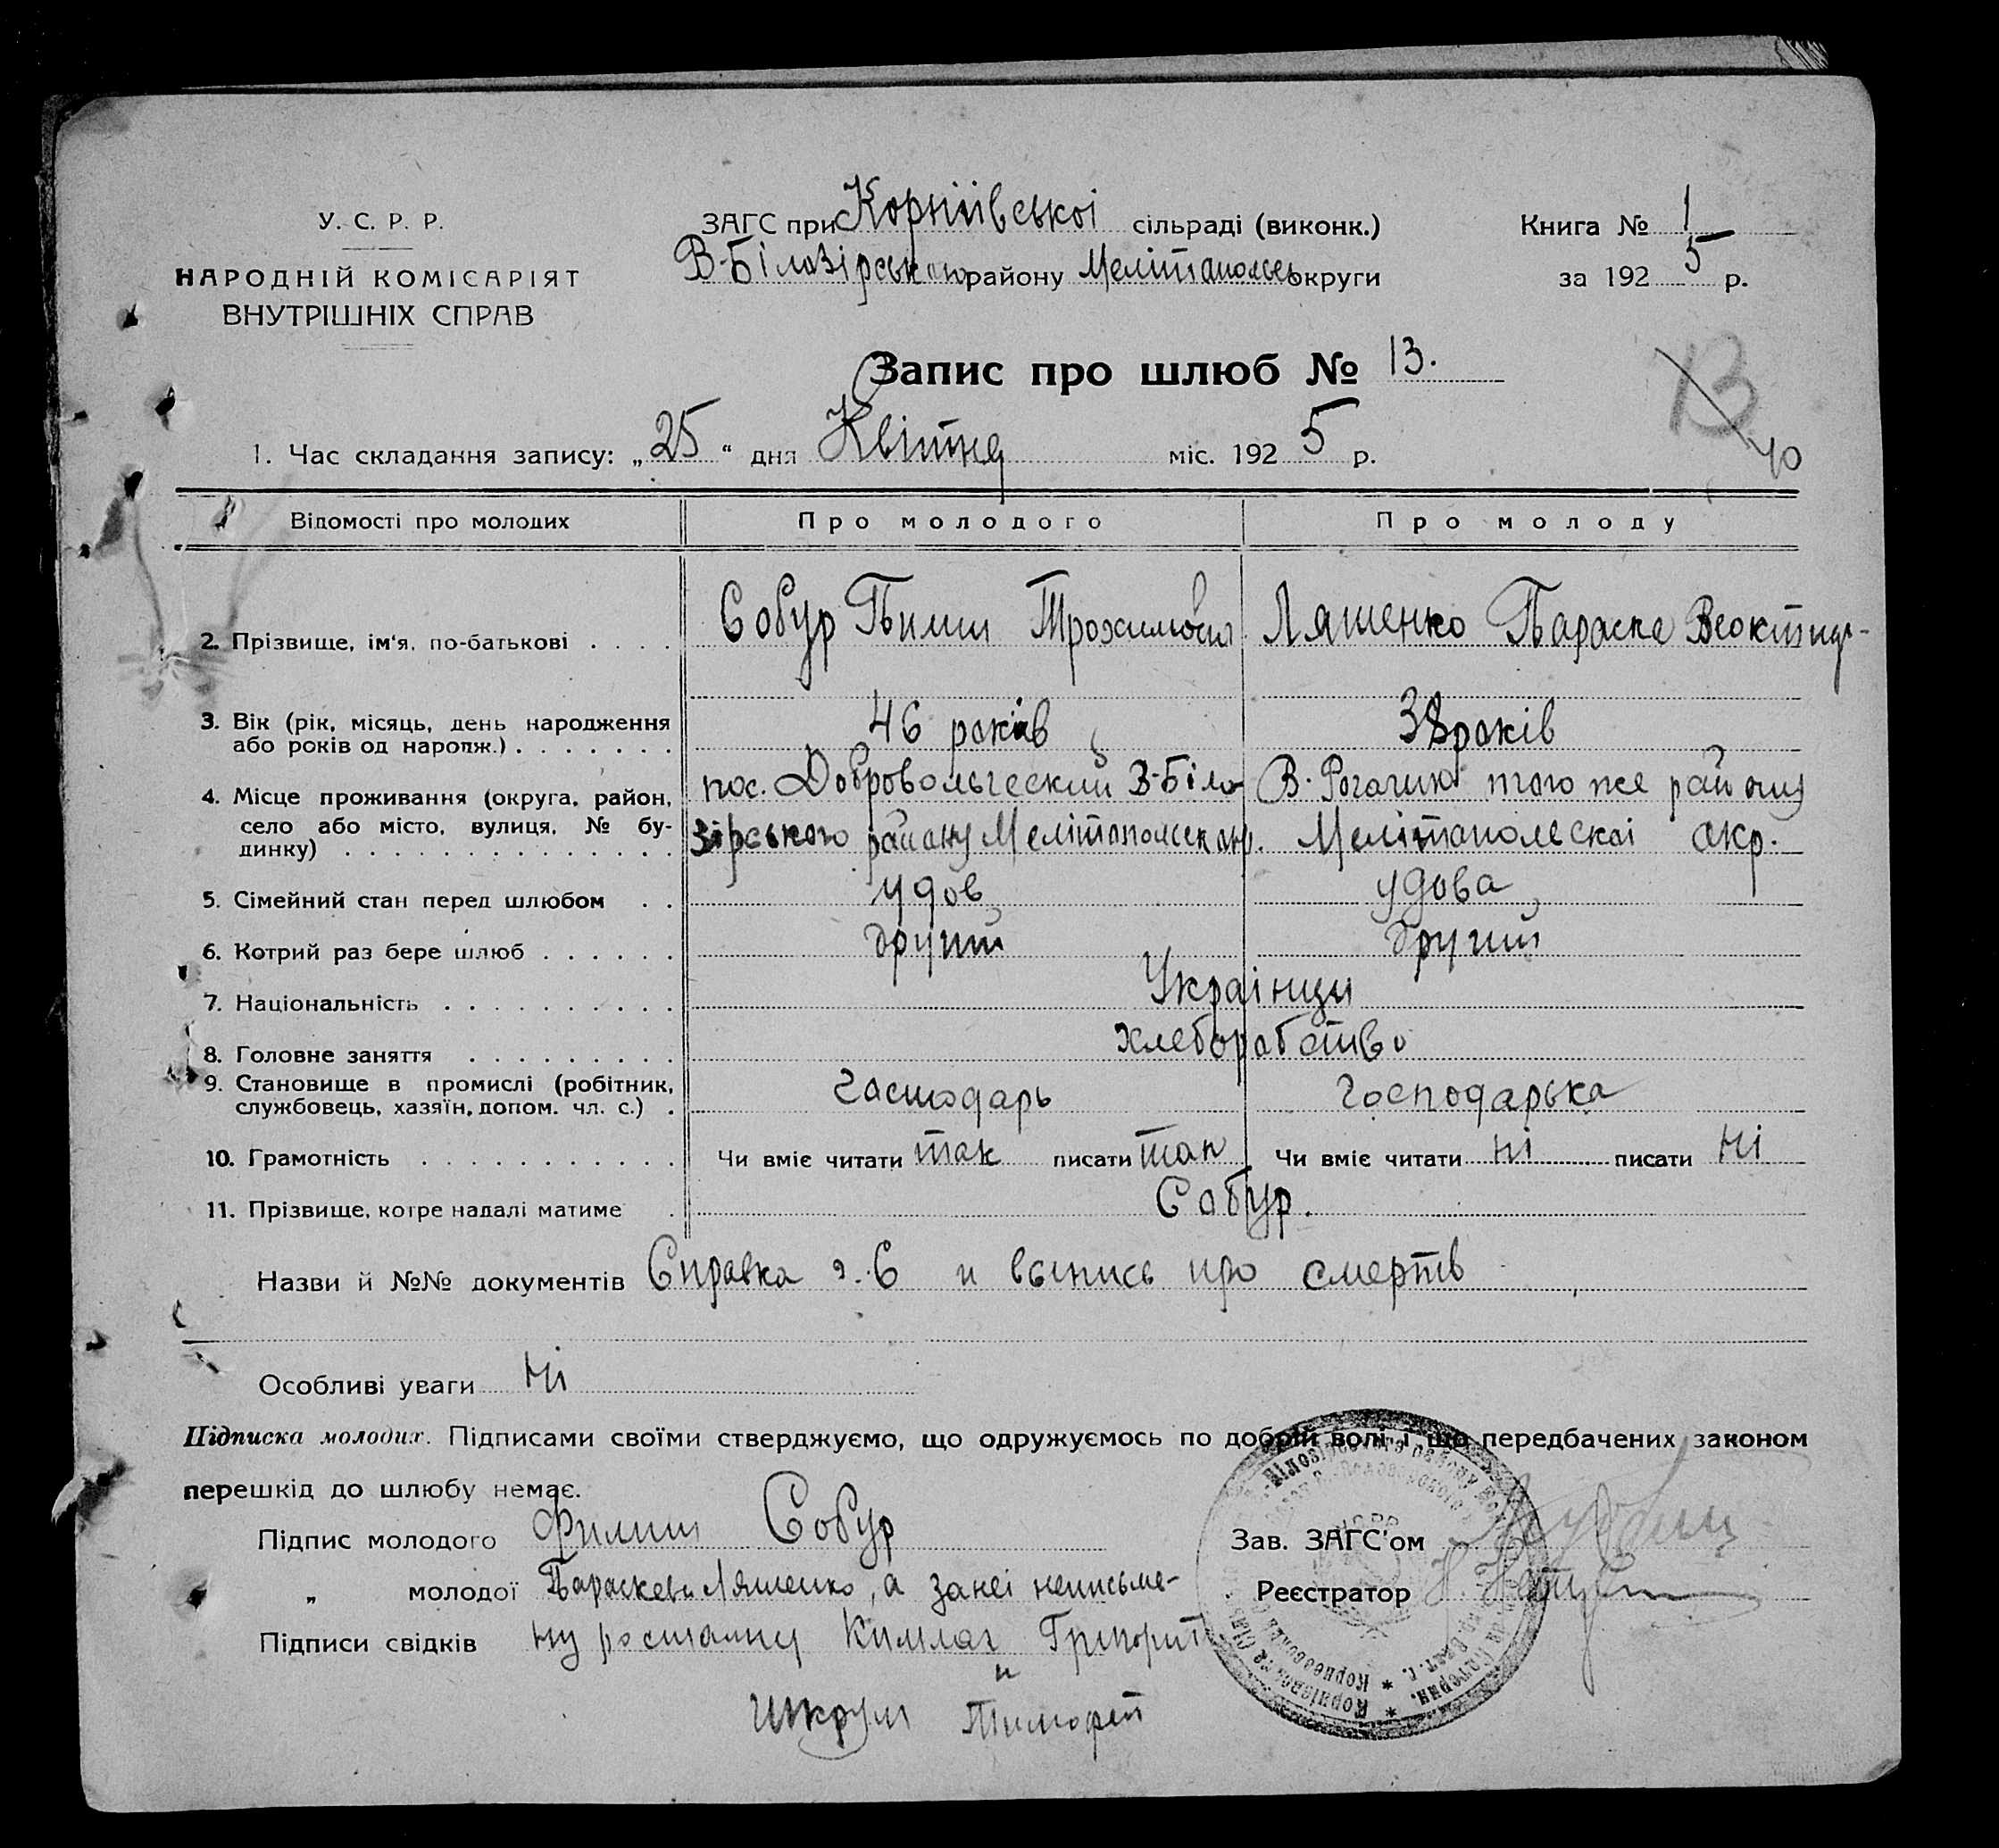 У. С. Р. Р.
НАРОДНІЙ КОМІСАРІЯТ
ВНУТРІШНІХ СПРАВ
ЗАГС при Корніївської сільраді (виконк.)
В-Білозірського району Мелітопольс округи
Книга № 1
за 1925 р.
Запис про шлюб № 13.
13
40
1. Час складання запису: „25“ дня Квітня міс. 1925 р.
Відомості про молодих Про молодого Про молоду
2. Прізвище, ім'я, по-батькові . . . . Собур Пилип Трохимович Ляшенко Параска
3. Вік (рік, місяць, день народження
або років од народж.) . . . . . . . 46 років 38 років
4. Місце проживання (округа, район,
село або місто, вулиця, № бу-
динку) . . . . . . . . . . . . . . .
пос. Добровольческий В-Біло
зірського району Мелітопольск окр.
В. Рогачик того же району
Мелітопольскаі окр.
5. Сімейний стан перед шлюбом . . удов удова
6. Котрий раз бере шлюб . . . . . . другий другий
7. Національність . . . . . . . . . . Українци
8. Головне заняття . . . . . . . . . хлеборабство
9. Становище в промислі (робітник,
службовець, хазяїн, допом. чл. с.) . господарь господарька
10. Грамотність . . . . . . . . . . . Чи вміє читати так писати так Чи вміє читати ні писати ні
11. Прізвище, котре надалі матиме . Собур.
Назви й №№ документів Справка з. 6 и выпись про смертв
Особливі уваги Ні
Підписка молодих. Підписами своїми стверджуємо, що одружуємось по добрій волі і що передбачених законом
перешкід до шлюбу немає.
Підпис молодого Филип Собур
„ молодої Параскева Ляшенко, а занеі неписьме-
Підписи свідків ну росталиу Григорий
и
Тимофей
Зав. ЗАГС'ом
Реєстратор Н.